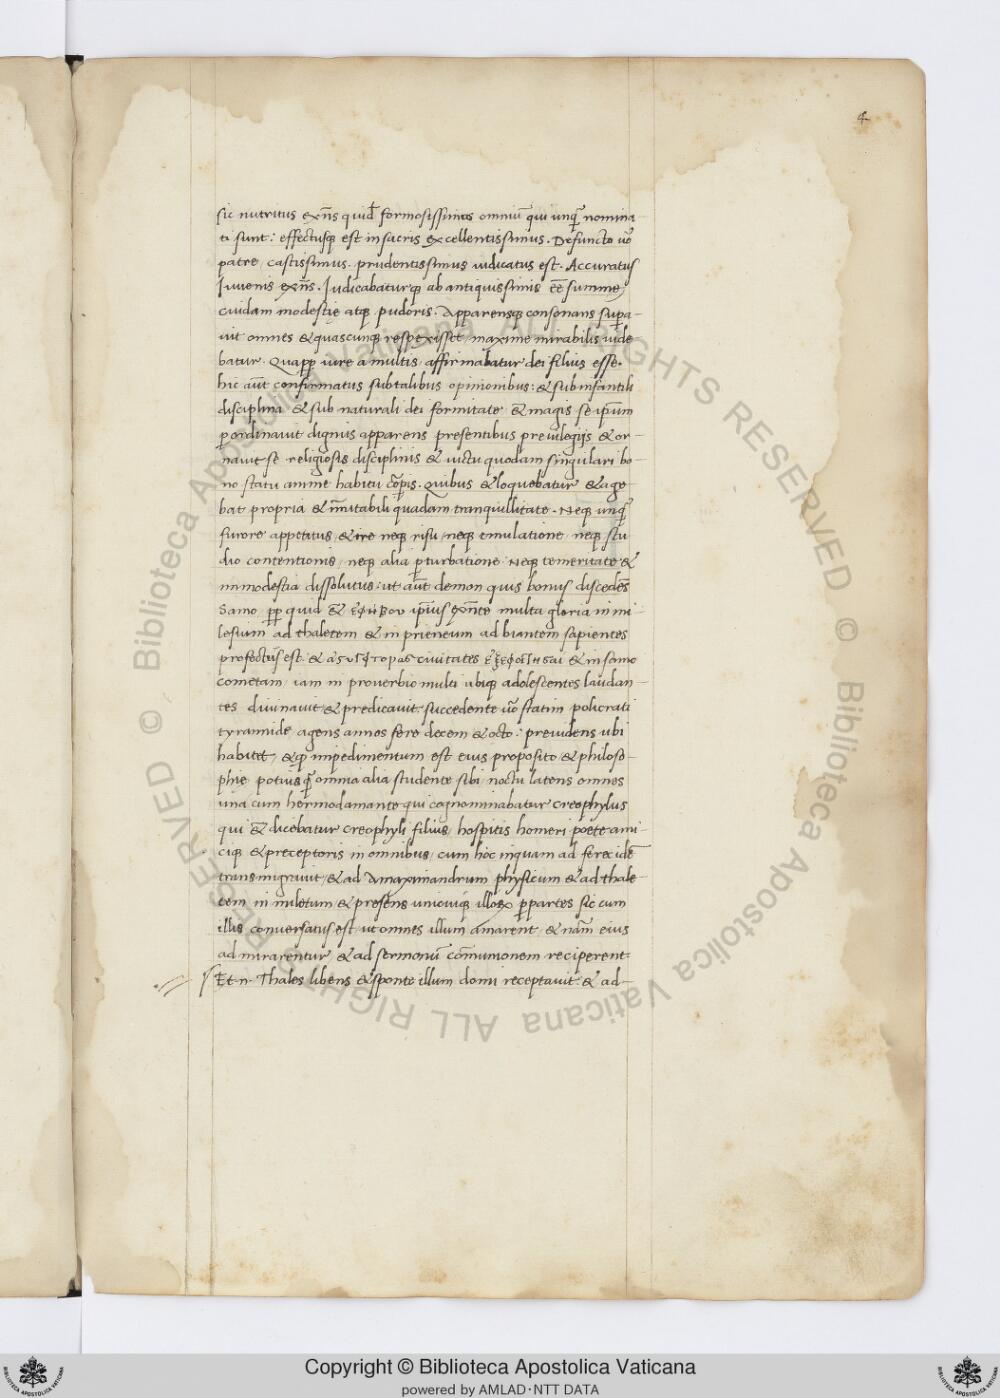 4
sic nutritus exñs quid̃ formosissimos omniũ qui unq̃ nomina-
ti sunt: effectusq; est in sacris excellentissimus. Defuncto uõ
patre castissimus prudentissimus iudicatus est. Accuratus
Iuuenis exñs. Iudicabaturq; ab antiquissimis eẽ summe
cuidam modestię atq; pudoris. Apparensq; consonans supa-
uit omnes & quascunq; respexisset, maxime mirabilis uide
batur. Quapp iure a multis affirmabatur dei filius esse.
hic aũt confirmatus sub talibus opinionibus: & sub infantili
disciplina & sub naturali dei formitate & magis se ipsum
pordinauit dignus apparens presentibus preuilegijs & or-
nauit se religiosis disciplinis & uictu quodam singulari bo-
no statu anime habitu corpis. Quibus & loquebatur & age
bat propria & imitabili quadam tranquillitate. Neq; unq̃
furore appetitus, & ire neq; risu, neq; emulatione neq; stu
dio contentionis, neq; alia pturbatione. Neq; temeritate &
inmodestia dissolutus: ut aũt demon quis bonus discedẽs
Samo pp quid
ipsius exñte multa gloria in mi-
lesium ad thaletem & in prieneum ad biantem sapientes
profectus est. &
ciuitates
& in samo
cometam iam in prouerbio multi ubiq; adolescentes laudan-
tes diuinauit & predicauit. succedente uõ statim policrati
tyramide agens annos fere decem & octo: preuidens ubi
habitet, & q impedimentum est eius proposito & philoso-
phię potiusq̃ omnia alia studente sibi noctu latens omnes
una cum hermodamante qui cognominabatur creophylus
qui & dicebatur creophyli filius, hospitis homeri poete ami-
ciq; & preceptoris in omnibus, cum hoc inquam ad ferecidẽ
transmigrauit, & ad Amaximandrum physicum & ad thale-
tem in miletum & presens unicuiq; illoꝝ ppartes sic cum
illis conuersatus est, ut omnes illum amarent & nãm eius
ad mirarentur & ad sermonũ cõmunionem reciperent
Et. n. Thales libens & sponte illum domi receptauit. & ad-
© Biblioteca Apostolica Vaticana ALL RIGHTS RESERVED © Biblioteca Apostolica Vaticana ALL RIGHTS RESERVED
Copyright © Biblioteca Apostolica Vaticana
powered by AMLAD·NTT DATA
BIBLIOTECA APOSTOLICA VATICANA
BIBLIOTECA APOSTOLICA VATICANA